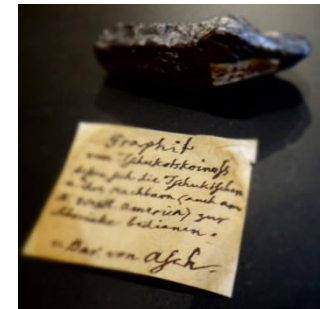 Graphit
vom Tschukotskoinoss
dessen sich die Tschuktschen
u. ihre nachbarn (auch aus
N. West America) zur
Schminke bedienen.
v. Bar. von Asch.